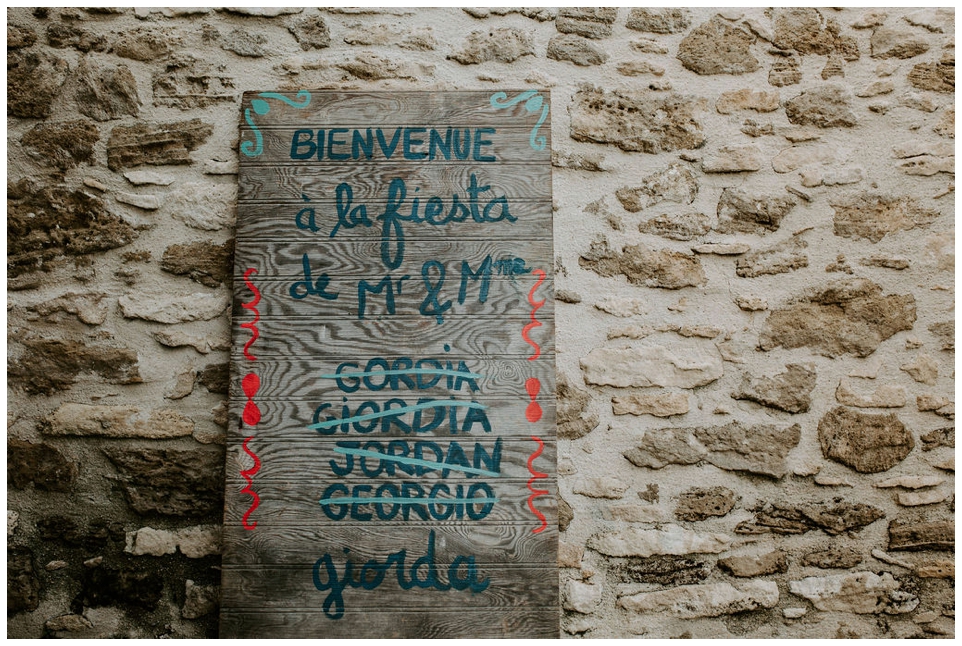 BIENVENUE
à la fiesta
de Mr & Mme
GORDIA
GIORDIA
JORDAN
GEORGIO
giorda